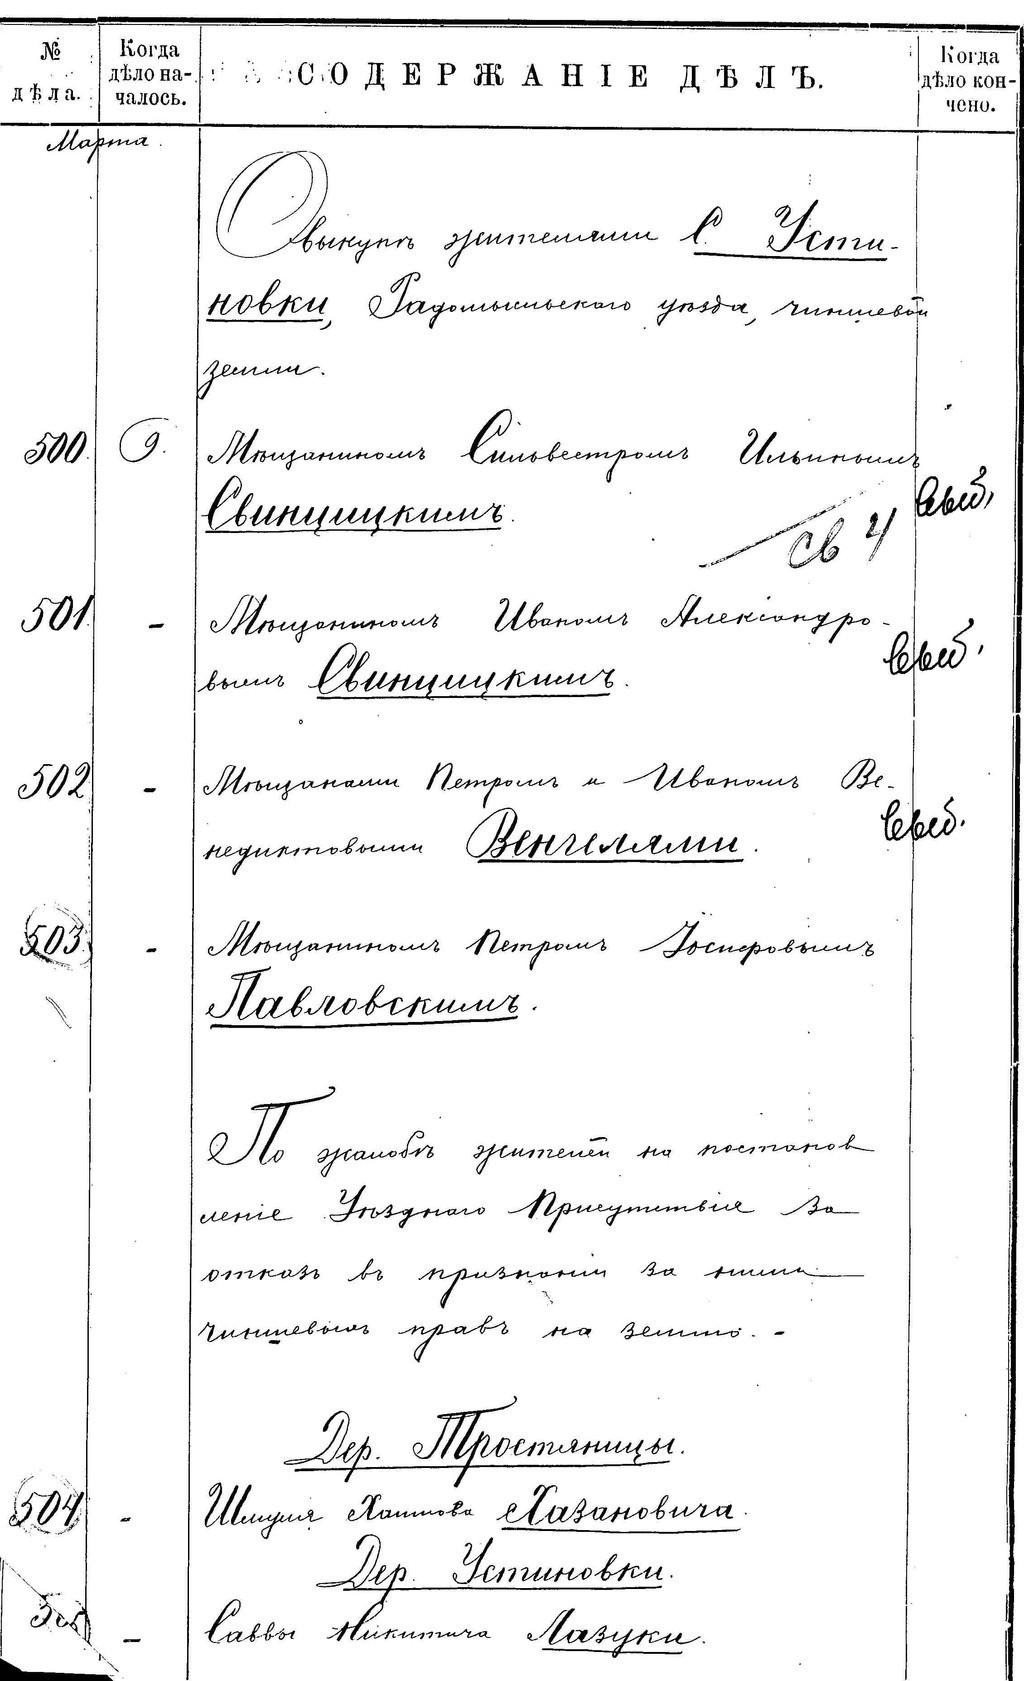 № дѣла.
Когда дѣло на-
чалось.
СОДЕРЖАНІЕ ДѢЛЪ.
Когда дѣло кон-
чено.
Марта.
О выкупѣ жителями С. Усти-
новки, Радомысльскаго уѣзда, чиншевой
земли.
500. 9. Мѣщаниномъ Сильвестромъ Ильинымъ
Свинцицкимъ.
св 4
501. - Мѣщаниномъ Иваномъ Александро-
вымъ Свинцицкимъ.
502 - Мѣщанами Петромъ и Иваномъ Ве-
недиктовыми Венгелями.
503. - Мѣщаниномъ Петромъ Іосифовымъ
Павловскимъ.
По жалобѣ жителей на постанов
леніе Уѣзднаго Присутствія за
отказъ въ признаніи за ними
чиншевыхъ правъ на землю. -
Дер. Тростяницы.
504 - Шмуля Хаимова Хазановича.
Дер. Устиновки.
505 - Саввы Никитича Лазуки.